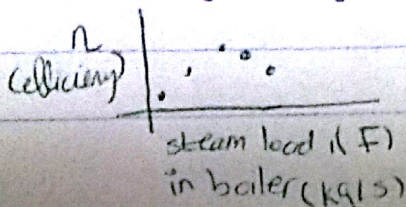 η
(efficiency)
steam load, (F)
in boiler (kg/s)